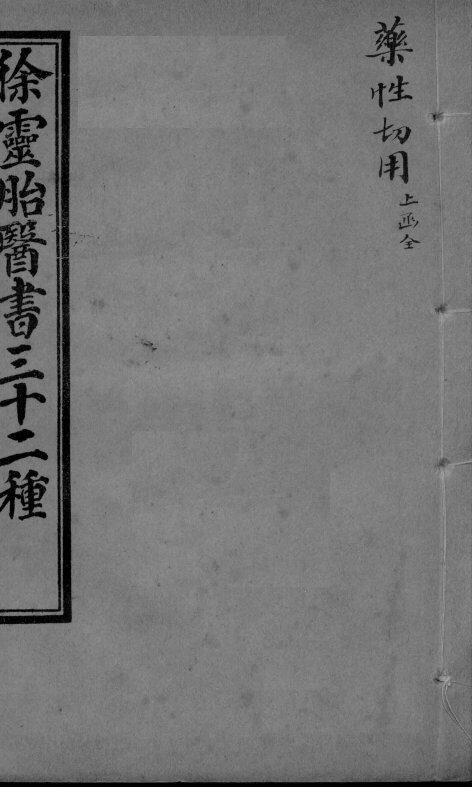 藥性切用
上函全
徐靈胎醫書三十二種